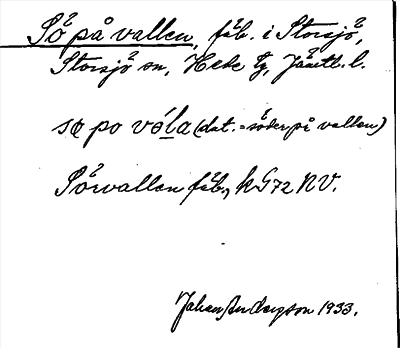 Sö på vallen, fäb. i Storsjö,
Storsjö sn, Hede tg, Jämtl. l.
sø po vóla (dat. = söder på vallen)
Sörvallen fäb, kG72 NV.
Johan Anderzson 1933.